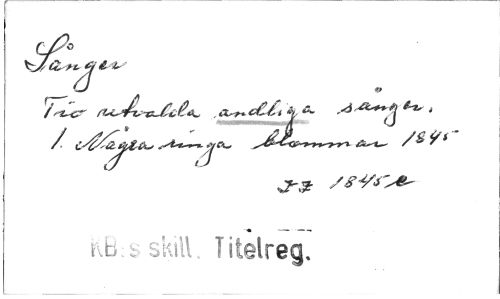 Sånger
Tio utvalda andliga sånger.
1. Några ringa blommor 1845
1845 e
KB:s skill. Titelreg.